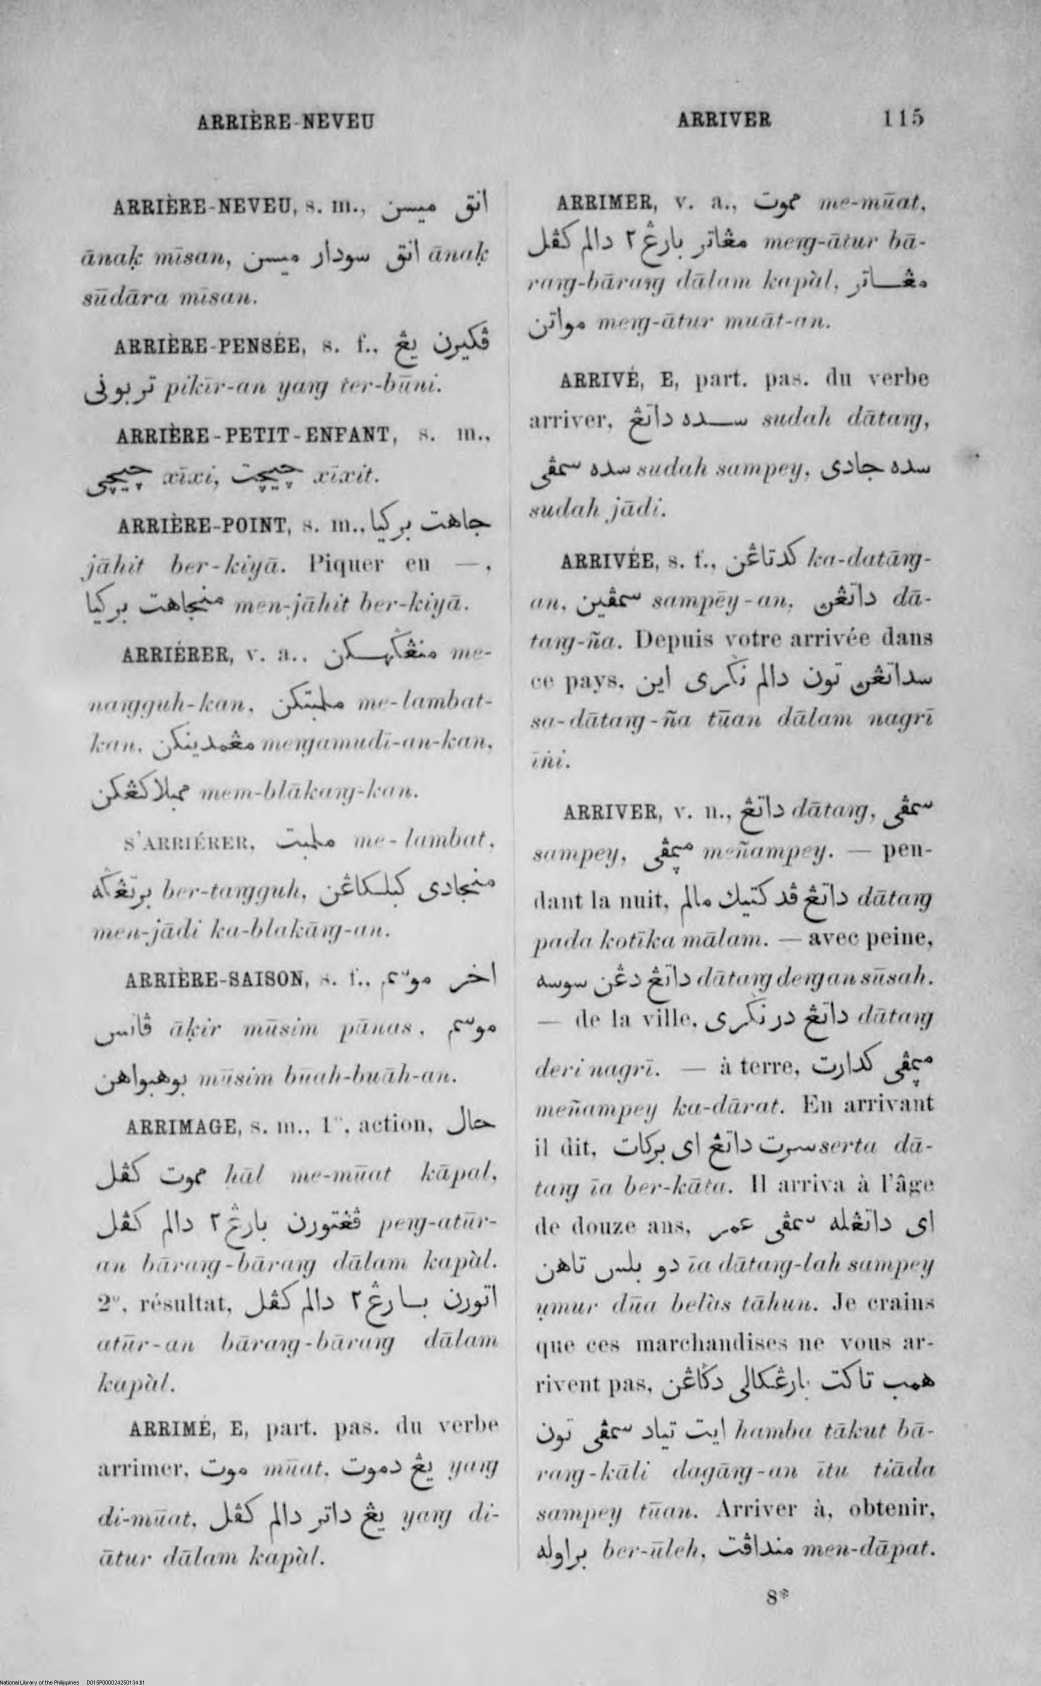 ARRIÈRE-NEVEU
ARRIVER 115
ARRIÈRE-NEVEU, s. m., انق ميسن
ānaḳ mīsan, انق سودار ميسن ānaḳ
sūdāra mīsan.
ARRIÈRE-PENSÉE, s. f., ڤكيرن يڠ
تربوني pikīr-an yaŋ ter-būni.
ARRIÈRE-PETIT-ENFANT, s. m.,
چيچي xīxi, چيچت xīxit.
ARRIÈRE-POINT, s. m., جاهت بركيا
jāhit ber-kiyā. Piquer en —,
منجاهت بركيا men-jāhit ber-kiyā.
ARRIÉRER, v. a., منڠݢهكن me-
naŋguh-kan, ملمبتكن me-lambat-
kan, مڠمدينكن meŋamudī-an-kan,
ممبلاكڠكن mem-blākaŋ-kan.
S'ARRIÉRER, ملمبت me-lambat,
برتڠݢه ber-taŋguh, منجادي كبلكاڠن
men-jādi ka-blakāŋ-an.
ARRIÈRE-SAISON, s. f., اخر موسم
ڤانس āḳir mūsim pānas, موسم
بوهبواهن mūsim būah-buāh-an.
ARRIMAGE, s. m., 1°, action, حال
مموت كڤل ḥāl me-mūat kāpal,
ڤڠتورن بارڠ٢ دالم كڤل peŋ-atūr-
an bāraŋ-bāraŋ dālam kapàl.
2°, résultat, اتورن بارڠ٢ دالم كڤل
atūr-an bāraŋ-bāraŋ dālam
kapàl.
ARRIMÉ, E, part. pas. du verbe
arrimer, موت mūat, يڠ دموت yaŋ
di-mūat, يڠ داتر دالم كڤل yaŋ di-
ātur dālam kapàl.
ARRIMER, v. a., مموت me-mūat,
مڠاتر بارڠ٢ دالم كڤل meŋ-ātur bā-
raŋ-bāraŋ dālam kapàl, مڠاتر
مواتن meŋ-ātur muāt-an.
ARRIVÉ, E, part. pas. du verbe
arriver, سده داتڠ sudah dātaŋ,
سده سمڤي sudah sampey, سده جادي
sudah jādi.
ARRIVÉE, s. f., كدتاڠن ka-datāŋ-
an, سمڤين sampēy-an, داتڠن dā-
taŋ-ña. Depuis votre arrivée dans
ce pays, سداتڠن تون دالم نݢري اين
sa-dātaŋ-ña tūan dālam nagrī
īni.
ARRIVER, v. n., داتڠ dātaŋ, سمڤي
sampey, مڽمڤي meñampey. — pen-
dant la nuit, داتڠ ڤد كتيك مالم dātaŋ
pada kotīka mālam. — avec peine,
داتڠ دڠن سوسه dātaŋ deŋan sūsah.
— de la ville, داتڠ در نݢري dātaŋ
deri nagrī. — à terre, مڽمڤي كدارت
meñampey ka-dārat. En arrivant
il dit, سرت داتڠ اي بركات serta dā-
taŋ īa ber-kāta. Il arriva à l'âge
de douze ans, اي داتڠله سمڤي عمر
دو بلس تاهن īa dātaŋ-lah sampey
ụmur dūa belàs tāhun. Je crains
que ces marchandises ne vous ar-
rivent pas, همب تاكت بارڠكالي دݢاڠن
ايت تياد سمڤي تون hamba tākut bā-
raŋ-kāli dagāŋ-an ītu tiāda
sampey tūan. Arriver à, obtenir,
براوله ber-ūleh, منداڤت men-dāpat.
8*
National Library of the Philippines